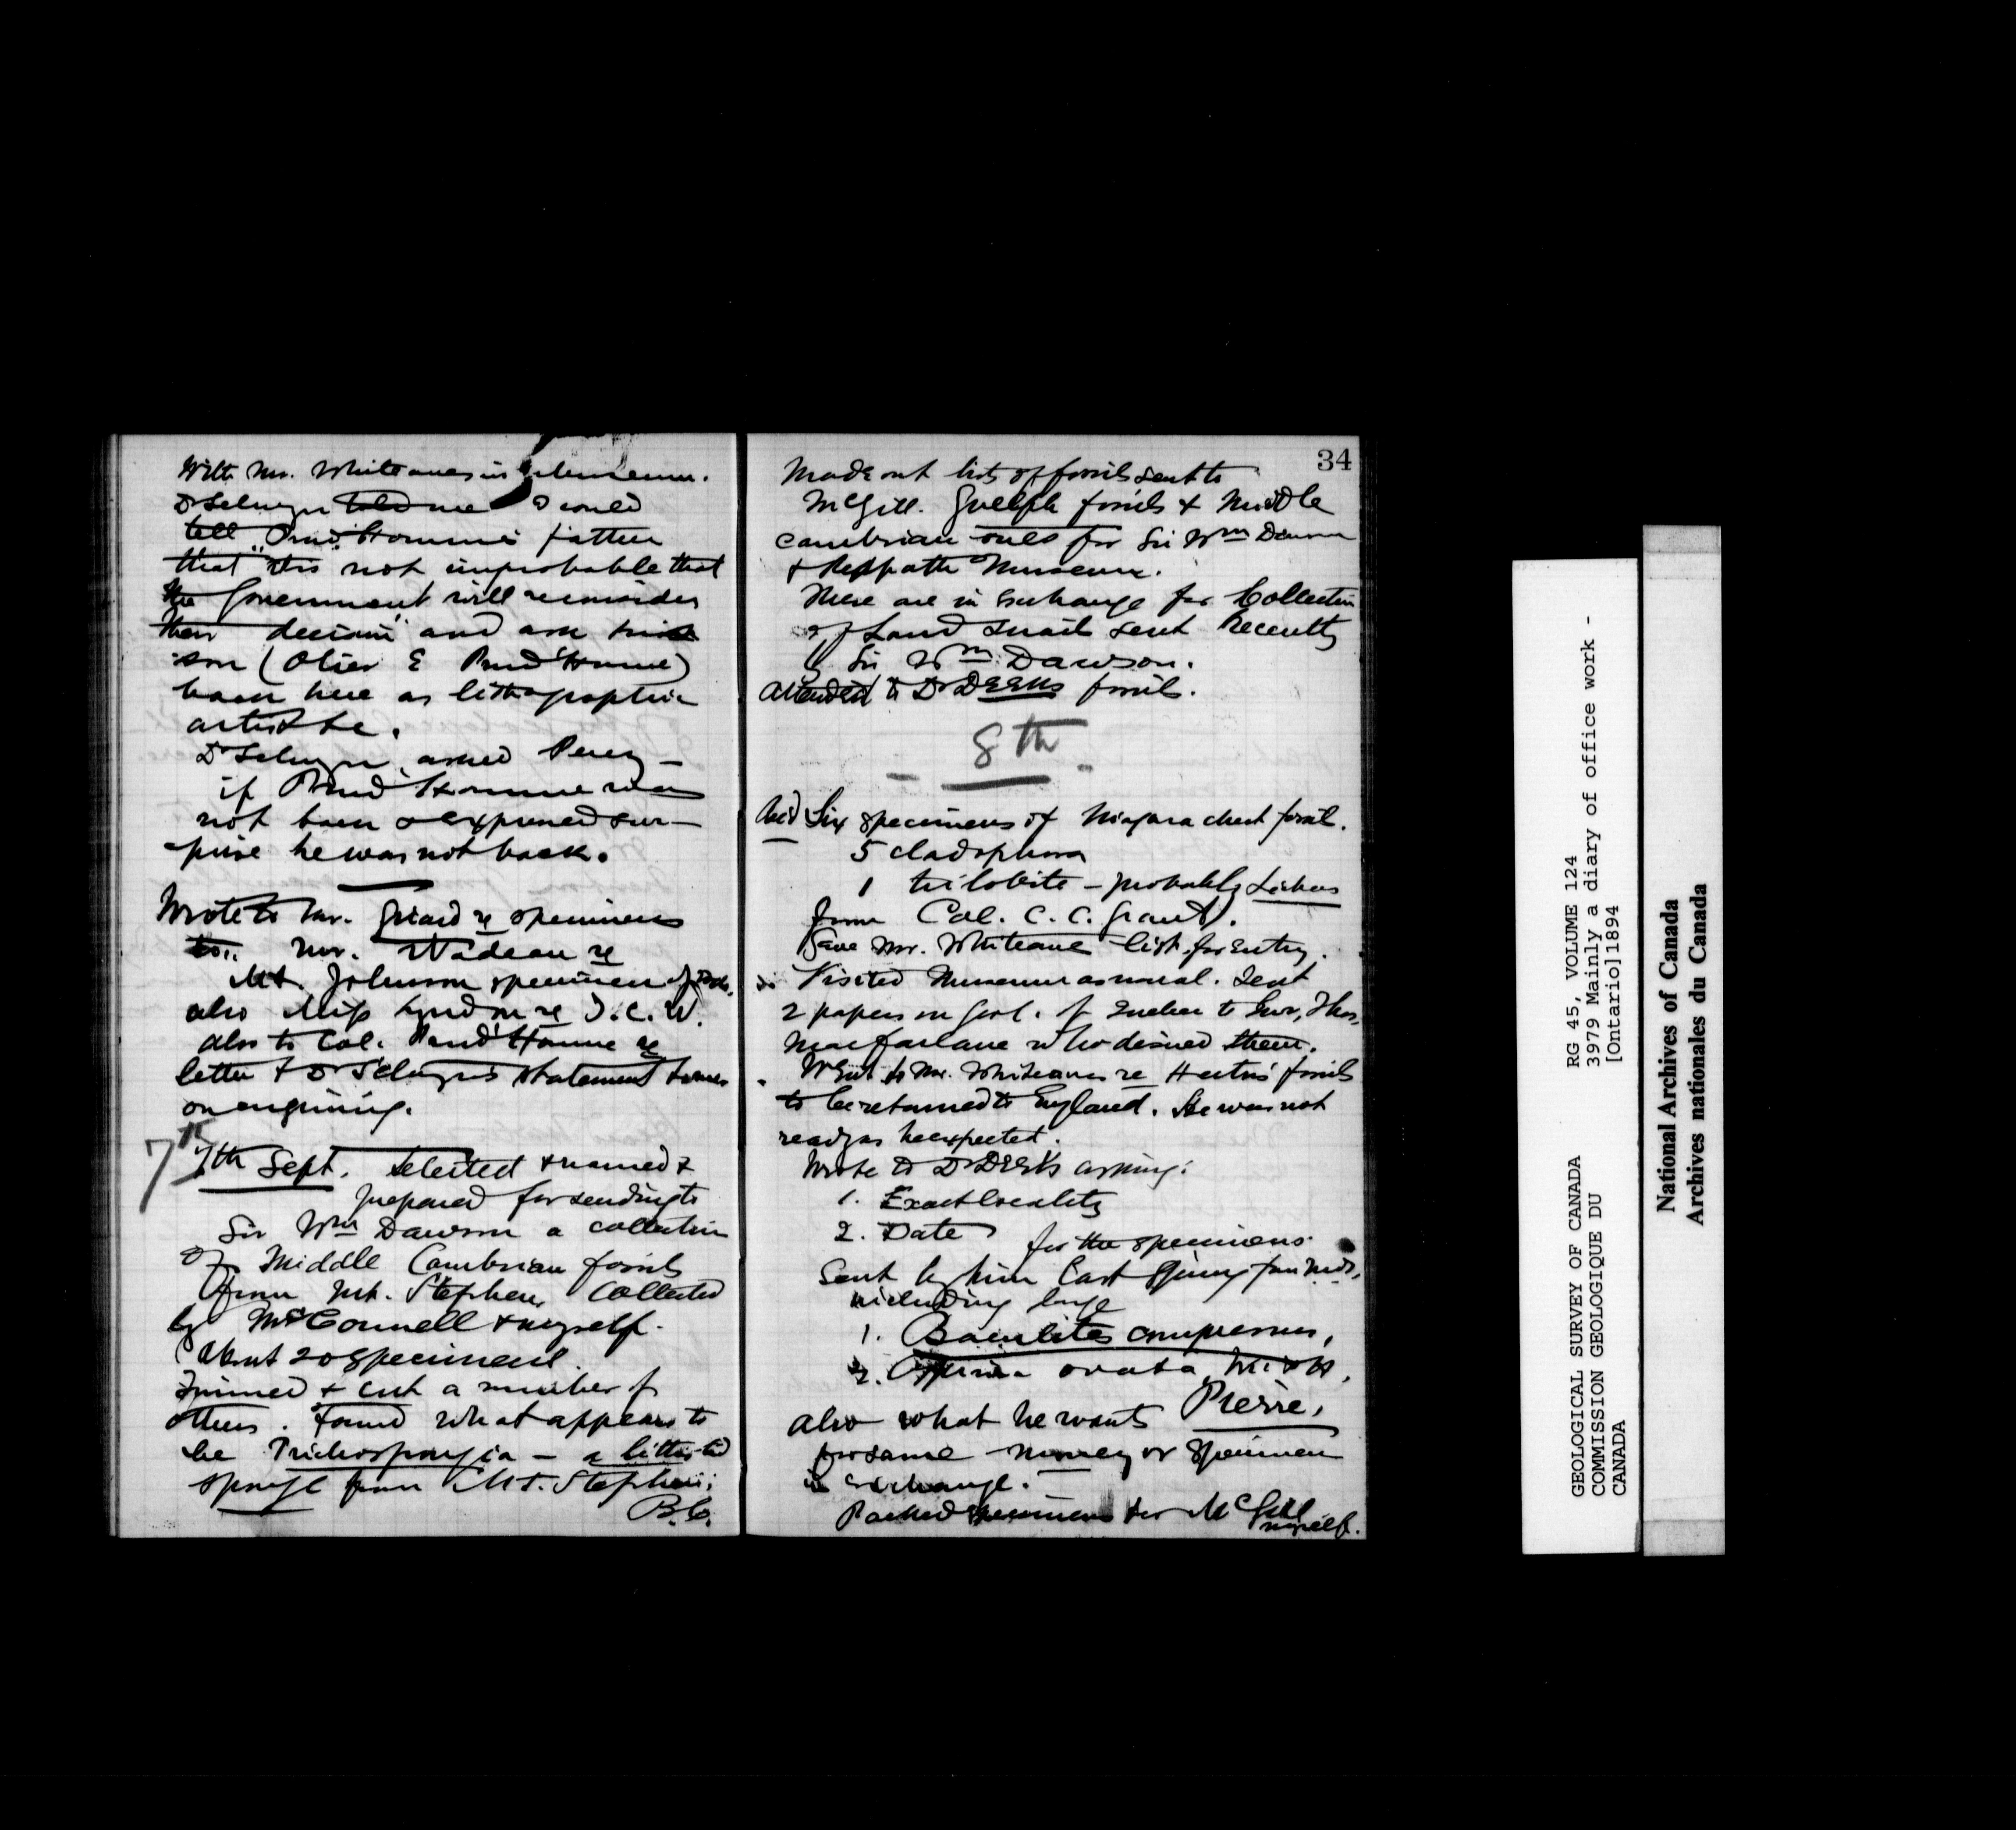 With Mr. Whiteaves in Museum.
Dr Selwyn told me I could
tell Prud'homme's father
that "it is not improbable that
the Government will reconsider
their decision" and ask his
son (Olier E Prud'homme)
back here as lithographic
artist &c.
Dr Selwyn asked Percy
if Prud'homme was
not back & expressed sur-
prise he was not back.
Wrote to Mr. Giard re specimens
to Mr. Nadeau re
Mt. Johnson specimen of
also Miss re I.C.W.
also to Col. Prud'homme re
letter & Dr Selwyn's statement
on enquiring.
7th
7th Sept. Selected & named &
prepared for sending to
Sir Wm Dawson a collection
of Middle Cambrian fossils
from Mt. Stephen, collected
by McConnell & myself.
About 20 specimens.
Trimmed & cut a number of
others. Found what appears to
be Trichospongia – a
sponge from Mt. Stephen,
B.C.
34
Made out lists of fossils sent to
McGill. Guelph fossils & Middle
Cambrian ones for Sir Wm Dawson
& Redpath Museum.
These are in exchange for Collection
of Land snails sent recently
by Sir Wm. Dawson.
Attended to Dr Deeks fossils.
8th
Rec'd Six specimens of Niagara chert fossils.
5 cladophora
1 trilobite – probably Lichas
from Col. C. C. Grant.
Gave Mr. Whiteaves list for entry.
Visited Museum as usual. Sent
2 papers on Geol. of Quebec to Thos.
Macfarlane who desired them.
Went to Mr. Whiteaves re fossils
to be returned to England. He was not
ready as he expected.
Wrote to Dr Deeks asking:
1. Exact locality
2. Date
for the specimens
sent by him last Spring from
including large
1. Baculites compressus,
2. ovata
Pierre,
also what he wants
for same – money or specimens
in exchange.
Packed specimens for McGill
myself.
GEOLOGICAL SURVEY OF CANADA
COMMISSION GEOLOGIQUE DU
CANADA
RG 45, VOLUME 124
3979 Mainly a diary of office work -
[Ontario]1894
National Archives of Canada
Archives nationales du Canada